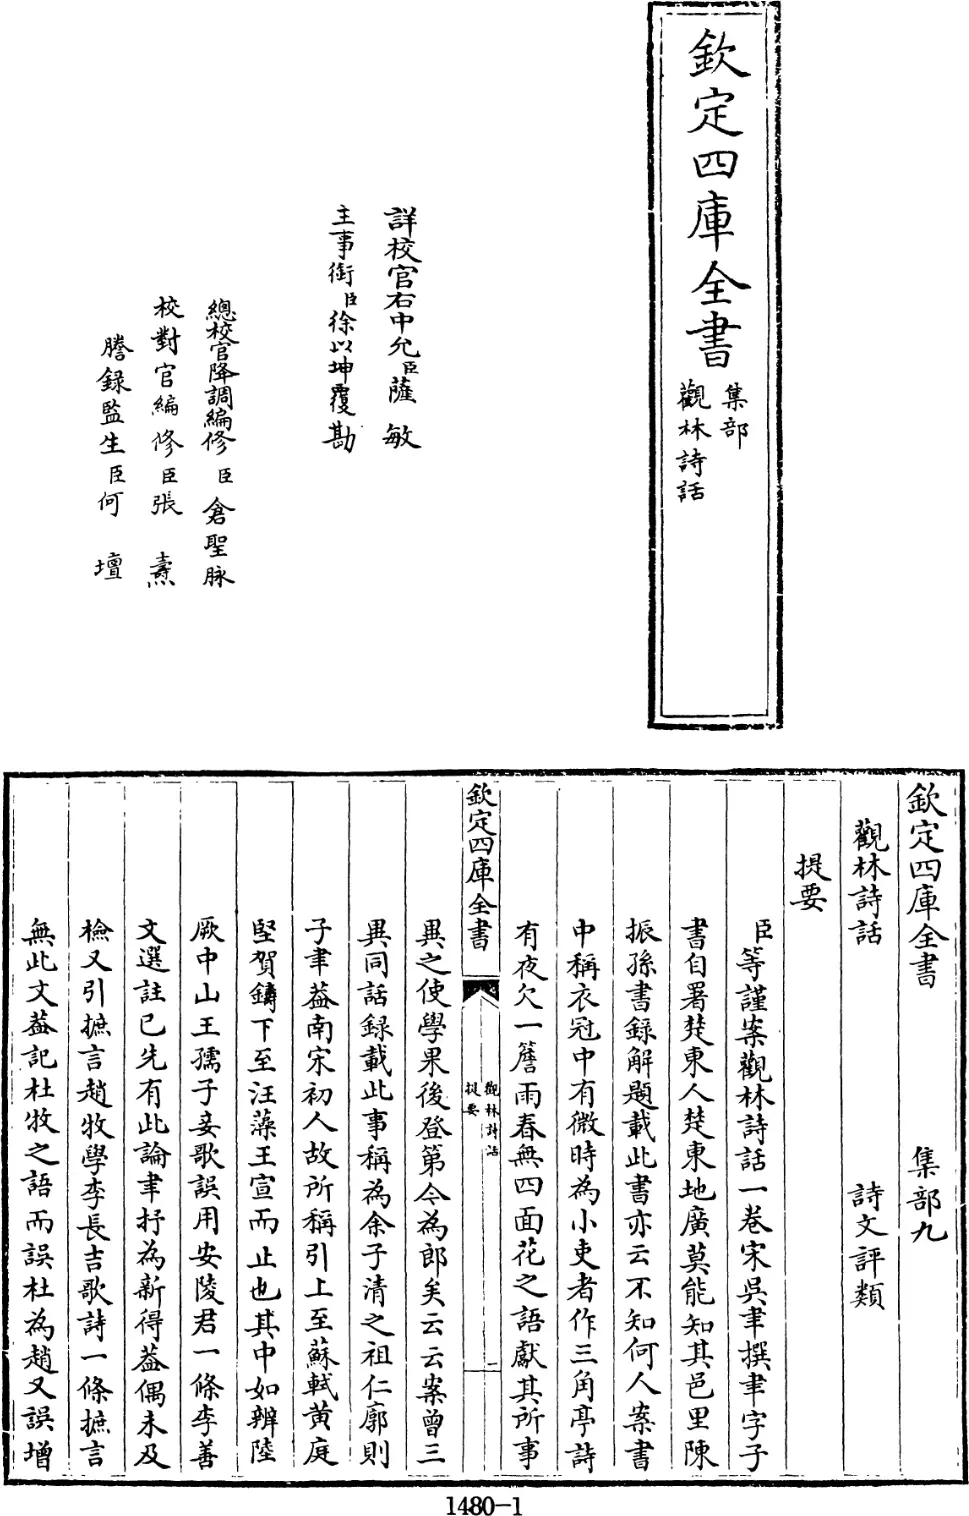 欽定四庫全書
集部
觀林詩話
詳校官右中允臣薩敏
主事銜臣徐以坤覆勘
總校官降調編修臣倉聖脉
校對官編修臣張燾
謄錄監生臣何壇
欽定四庫全書 集部九
觀林詩話 詩文評類
提要
臣等謹案觀林詩話一卷宋吳聿撰聿字子
書自署楚東人楚東地廣莫能知其邑里陳
振孫書錄解題載此書亦云不知何人案書
中稱衣冠中有微時為小吏者作三角亭詩
有夜欠一簷雨春無四面花之語獻其所事
欽定四庫全書
觀林詩話
提要
一
異之使學果後登第今為郎矣云云案曾三
異同話録載此事稱為余子清之祖仁廓則
子聿葢南宋初人故所稱引上至蘇軾黄庭
堅賀鑄下至汪藻王宣而止也其中如辨陸
厥中山王孺子妾歌誤用安陵君一條李善
文選註已先有此論聿抒為新得葢偶未及
檢又引摭言趙牧學李長吉歌詩一條摭言
無此文葢記杜牧之語而誤杜為趙又誤增
1480-1